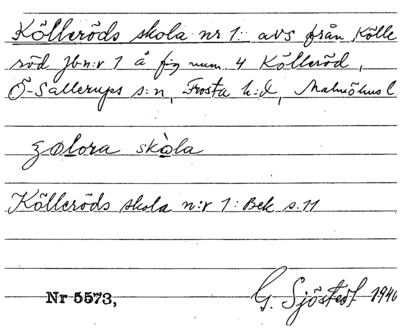 Kölleröds skola nr 1: avs från Kölle
röd Jbn:r 1 å fig num. 4 Kölleröd,
Ö-Sallerups s:n, Frosta h:d, Malmöhus l
skola
Kölleröds skola n:r 1: Bek s. 11
Nr 5573,
G. Sjöstedt 1940